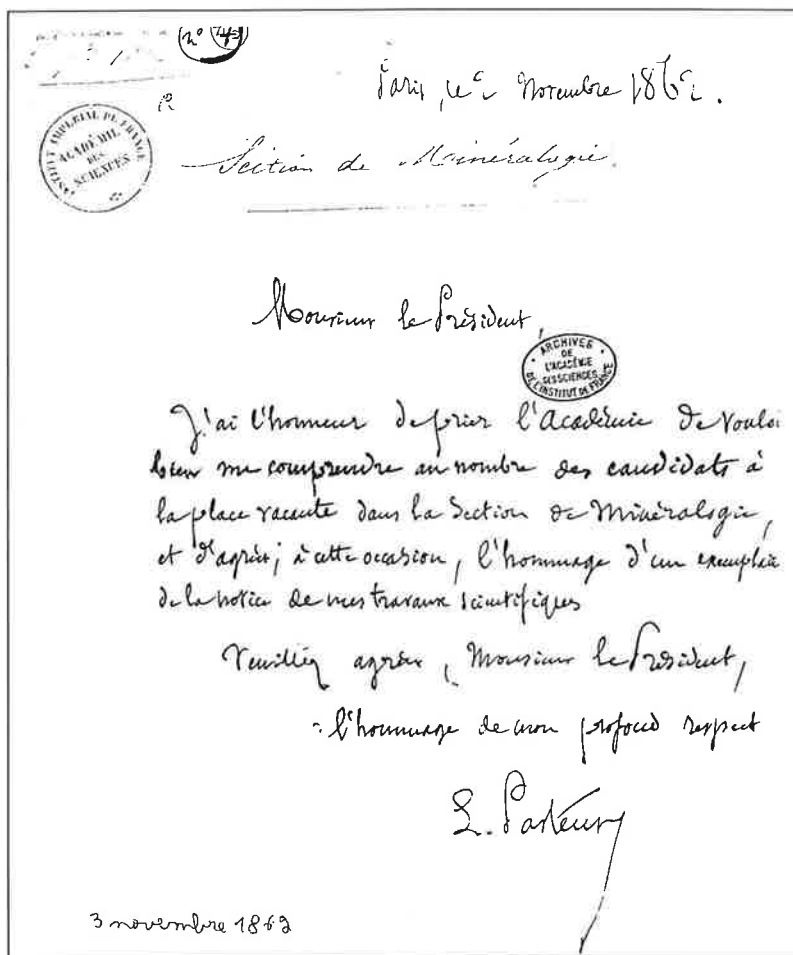 nº
Paris, le Novembre 1862.
INSTITUT IMPÉRIAL DE FRANCE
ACADÉMIE
DES
SCIENCES
Section de Minéralogie.
Monsieur le Président,
ARCHIVES
DE
L'ACADÉMIE
DES SCIENCES
DE L'INSTITUT DE FRANCE
J'ai l'honneur de prier l'Académie de vouloi
bien me comprendre au nombre des candidats à
la place vacante dans la Section de Minéralogie,
et d'agréer, à cette occasion, l'hommage d'un exemplaire
de la notice de mes travaux scientifiques
Veuillez agréer, Monsieur le Président,
l'hommage de mon profond respect
L. Pasteur
3 novembre 1862